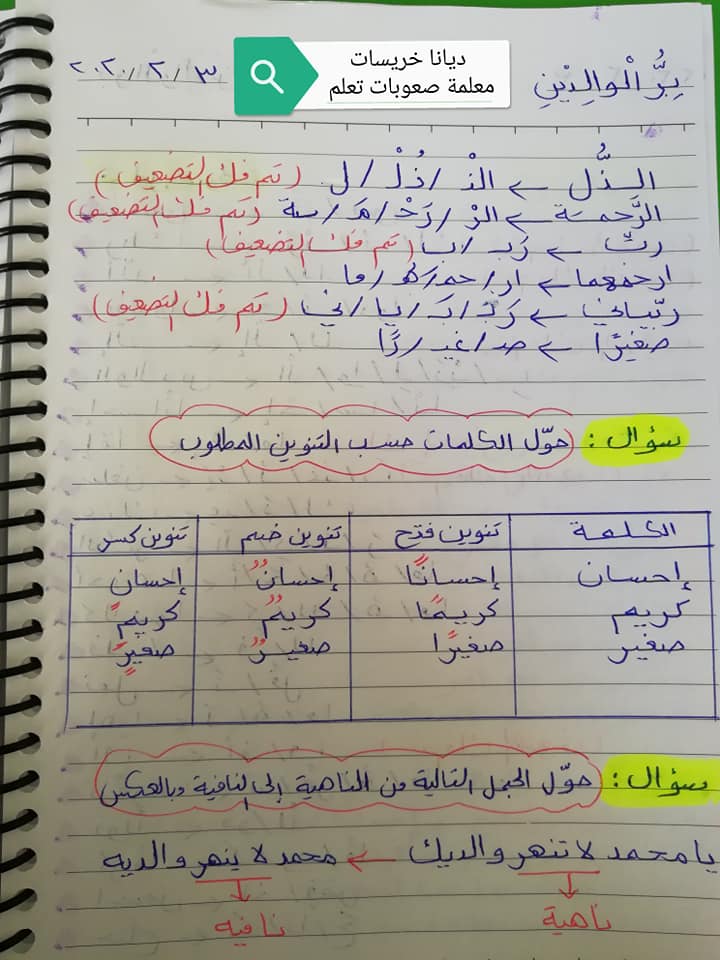 ديانا خريسات
معلمة صعوبات تعلم
بِرُّ الْوالِدَيْنِ ٣/٢/٢٠٢٠
الذُّل ← الْذ/ذُلْ/ل (تم فك التضعيف)
الرَّحمة ← الرْ/رَحْ/مَـ/ـة (تم فك التضعيف)
ربّ ← رَبـ/ـب (تم فك التضعيف)
ارحمهما ← ار/حمـ/هُـ/ما
ربّياني ← رَبْ/بَـ/يا/ني (تم فك التضعيف)
صغيرًا ← صـ/غيـ/رًا
سؤال: حوّل الكلمات حسب التنوين المطلوب
الكلمة تنوين فتح تنوين ضم تنوين كسر
إحسان إحسانًا إحسانٌ إحسان
كريم كريمًا كريمٌ كريمٍ
صغير صغيرًا صغيرٌ صغيرٍ
سؤال: حوّل الجمل التالية من الناهية إلى النافية وبالعكس
يا محمد لا تنهر والديك ← محمد لا ينهر والديه
ناهية نافيه